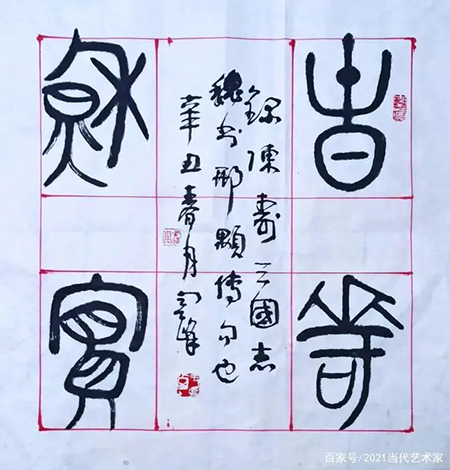 春華
秋實
錄陳壽三國志
魏书邢顒傳句也
辛丑春月
百家号/2021当代艺术家